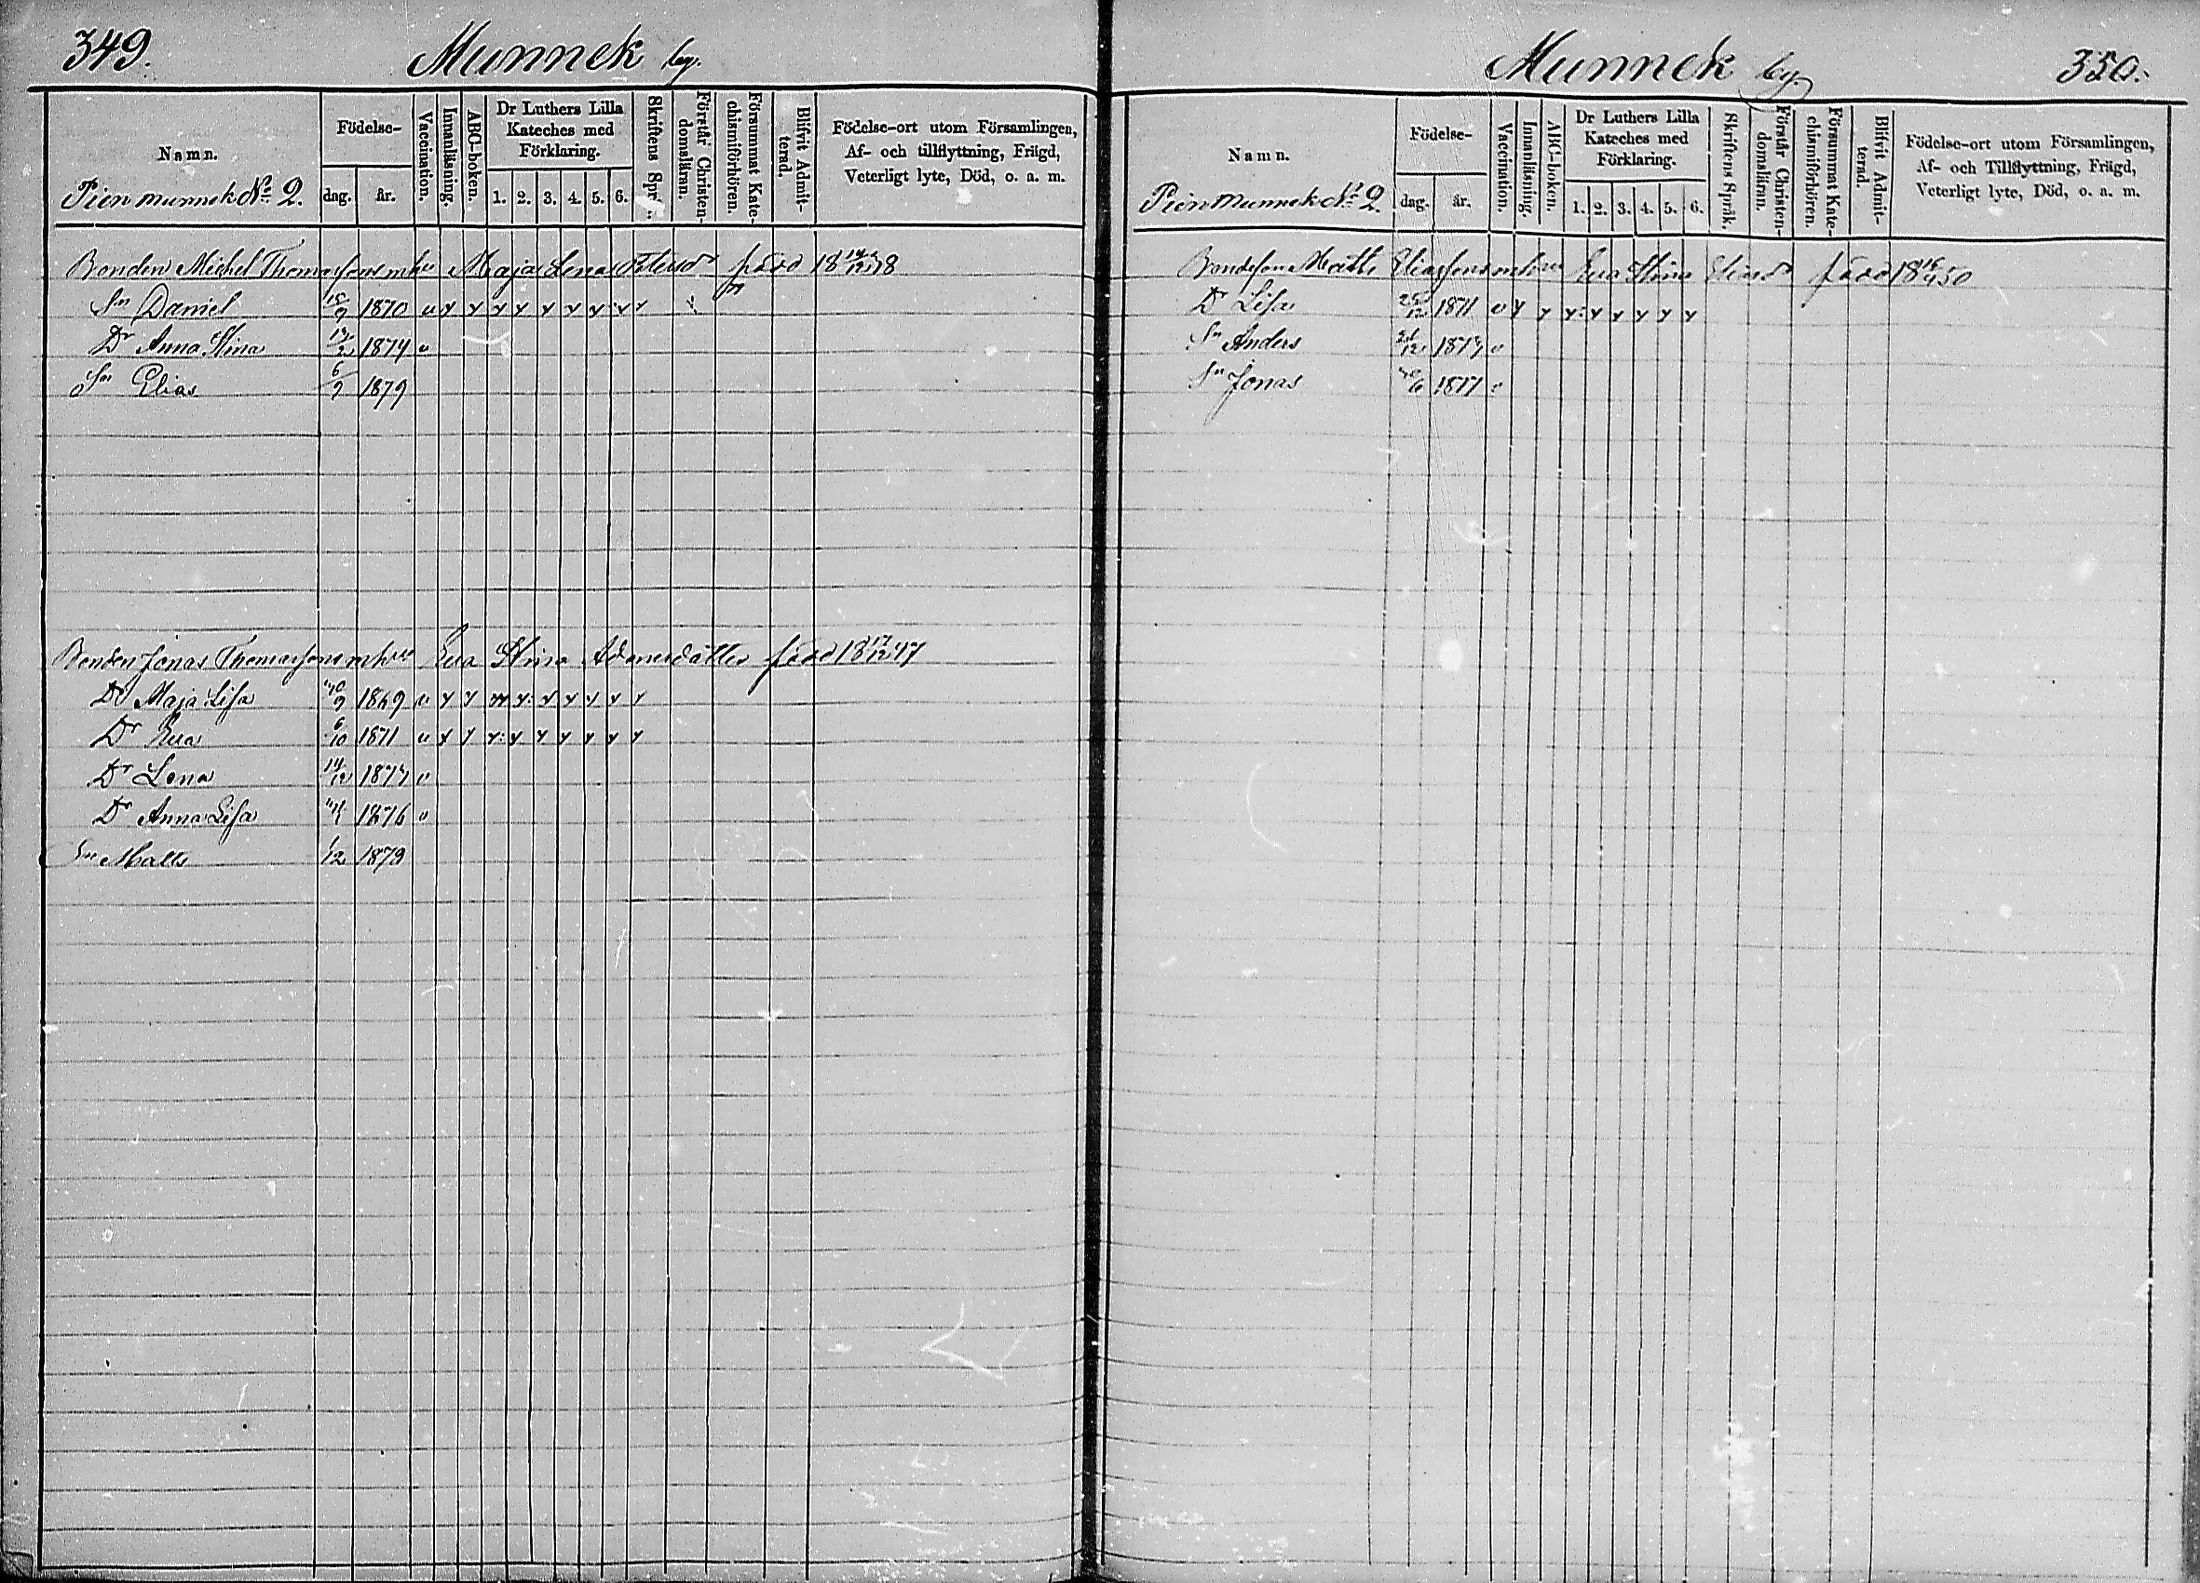 349.
Munnek by.
Namn.
Födelse-
dag.
år.
Vaccination.
Innanläsning.
ABC-boken.
Dr Luthers Lilla
Kateches med
Förklaring.
1. 2. 3. 4. 5. 6.
Skriftens Spr
Förstår Christen-
domsläran.
Försummat Kate-
chismiförhören.
Blifvit Admit-
terad.
Födelse-ort utom Församlingen,
Af- och tillflyttning, Frägd,
Veterligt lyte, Död, o. a. m.
Pien munnek No 2.
Bonden Michel Thomassons Maja Lena född
Sn Daniel 18/9 1870 v
Dr Anna Stina 1874 v
Sn Elias 6/9 1879
Bonden Jonas Thomassons Eva Stina Adamsdotter född 18 17/12 47
Dr Maja Lisa 1869
Dr Eva 6/10 1871
Dr Lena 14/12 1874 v
Dr Anna Lisa 1876 v
Sn Matts 1/12 1879
Munnek by.
350.
Namn.
Födelse-
dag.
år.
Vaccination.
Innanläsning.
ABC-boken.
Dr Luthers Lilla
Kateches med
Förklaring.
1. 2. 3. 4. 5. 6.
Skriftens Språk.
Förstår Christen-
domsläran.
Försummat Kate-
chismiförhören.
Blifvit Admit-
terad.
Födelse-ort utom Församlingen,
Af- och Tillflyttning, Frägd,
Veterligt lyte, Död, o. a. m.
Pien Munnek No 2.
Bondeson Matts Eliassons Eva Stina Eliasdr född
Dr Lisa 1871 v
Sn Anders
Sn Jonas 1877